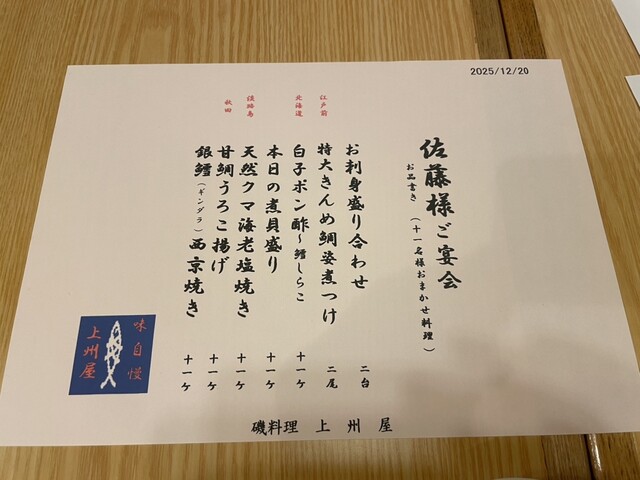 2025/12/20
佐藤様ご宴会
お品書き (十一名様おまかせ料理)
お刺身盛り合わせ 二台
江戸前 特大きんめ鯛姿煮つけ 二尾
北海道 白子ポン酢~鱈しらこ 十一ケ
本日の煮貝盛り 十一ケ
淡路島 天然クマ海老塩焼き 十一ケ
秋田 甘鯛うろこ揚げ 十一ケ
銀鱈(ギンダラ)西京焼き 十一ケ
味自慢
上州屋
磯料理 上州屋